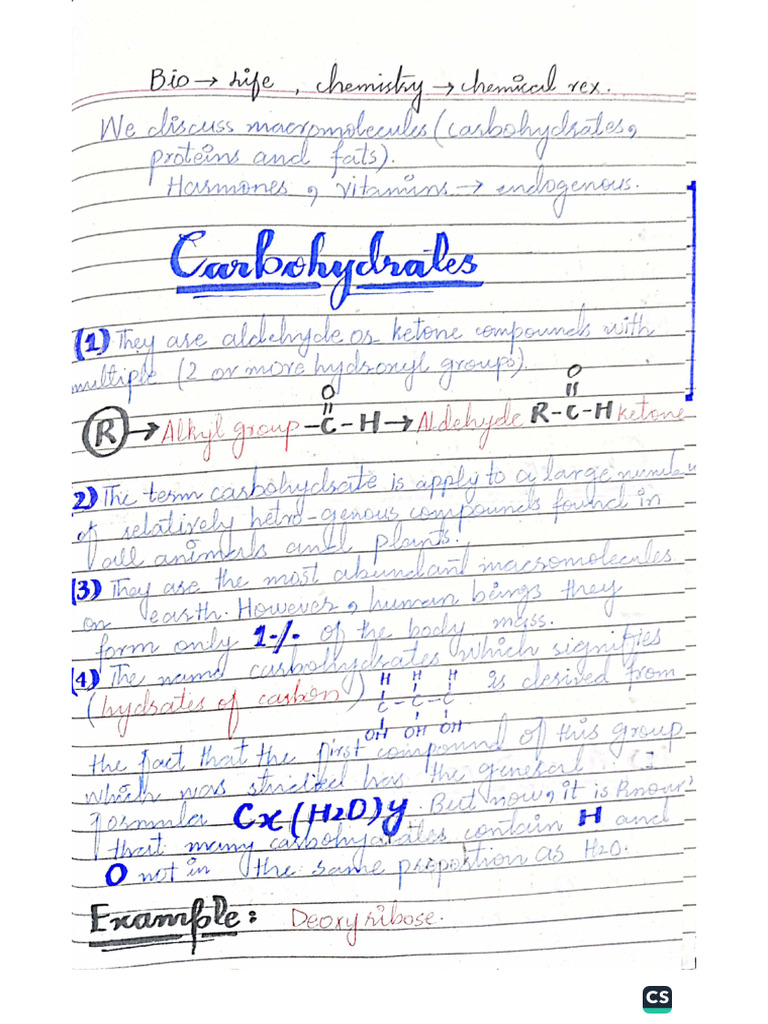 Bio → Life , chemistry → chemical rex.
We discuss macromolecules (carbohydrates,
proteins and fats).
Harmones , vitamins → endogenous.
Carbohydrates
(1) They are aldehyde or ketone compounds with
multiple (2 or more hydroxyl groups).
O O
|| ||
R → Alkyl group -C-H → Aldehyde R-C-H ketone
2) The term carbohydrate is apply to a large number
of relatively hetro-genous compounds found in
all animals and plants.
(3) They are the most abundant macromolecules
on earth. However, human beings they
form only 1% of the body mass.
(4) The name carbohydrates which signifies
(hydrates of carbon) is derived from
H H H
C - C - C
OH OH OH
the fact that the first compound of this group
which was studied has the general
formula Cx(H2O)y. But now, it is known
that many carbohydrates contain H and
O not in the same proportion as H2O.
Example: Deoxyribose.
CS